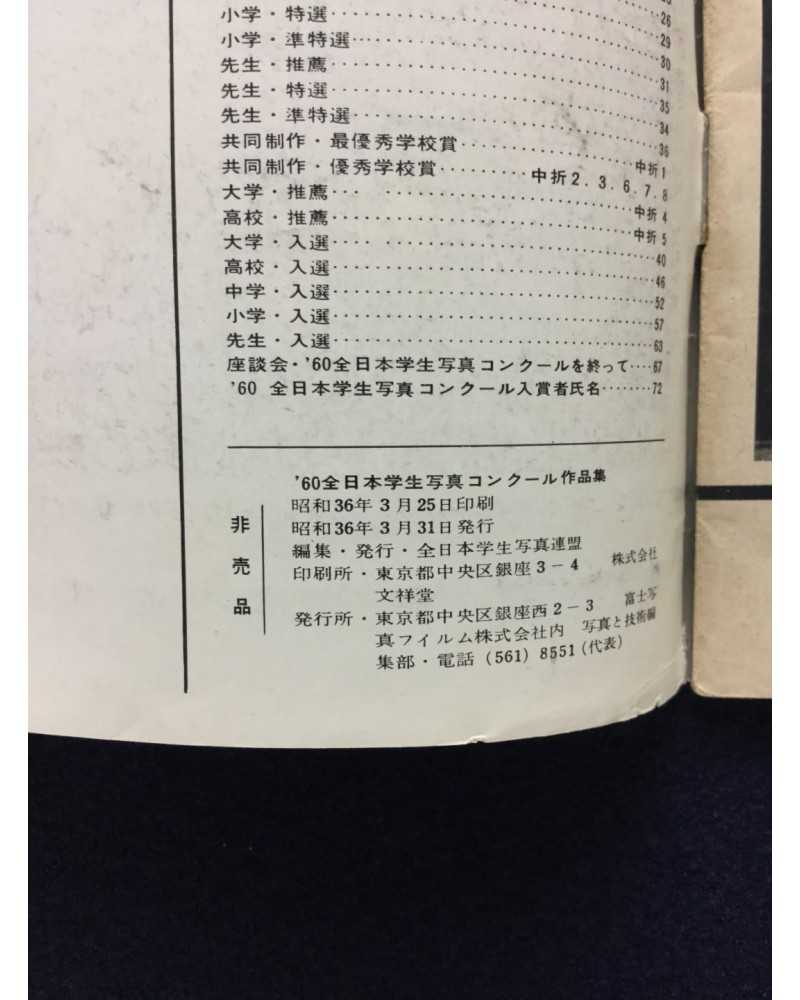 小学・特選 26
小学・準特選 29
先生・推薦 30
先生・特選 31
先生・準特選 35
34
共同制作・最優秀学校賞 36
共同制作・優秀学校賞 中折1
中折2.3.6.7.8
大学・推薦 中折4
高校・推薦 中折5
大学・入選 40
高校・入選 46
中学・入選 52
小学・入選 57
先生・入選 63
座談会・'60全日本学生写真コンクールを終って 67
'60 全日本学生写真コンクール入賞者氏名 72
非売品
'60全日本学生写真コンクール作品集
昭和36年3月25日印刷
昭和36年3月31日発行
編集・発行・全日本学生写真連盟
印刷所・東京都中央区銀座3−4 株式会社
文祥堂
発行所・東京都中央区銀座西2−3 富士写
真フイルム株式会社内 写真と技術編
集部・電話 (561) 8551 (代表)